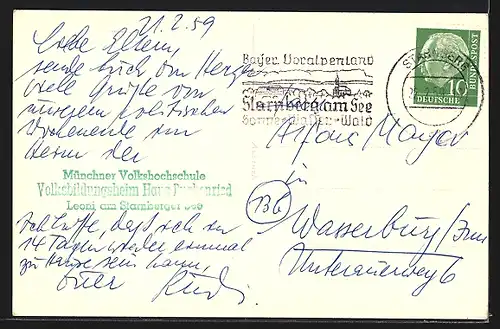 21.2.59
Liebe Eltern,
sende Euch von Herzen
viele Grüße von
unserem politischen
Wochenende im
Heim der
Münchner Volkshochschule
Volksbildungsheim Haus Buchenried
Leoni am Starnberger See
Ich hoffe, daß ich in
14 Tagen wieder einmal
zu Hause sein kann,
Euer Rudi
Bayer. Voralpenland
Starnberg am See
Sonne-Wasser-Wald
STARNBERG
10
DEUTSCHE
BUNDESPOST
Mayer
in
13b
Wasserburg/Inn
Unterauerweg 6